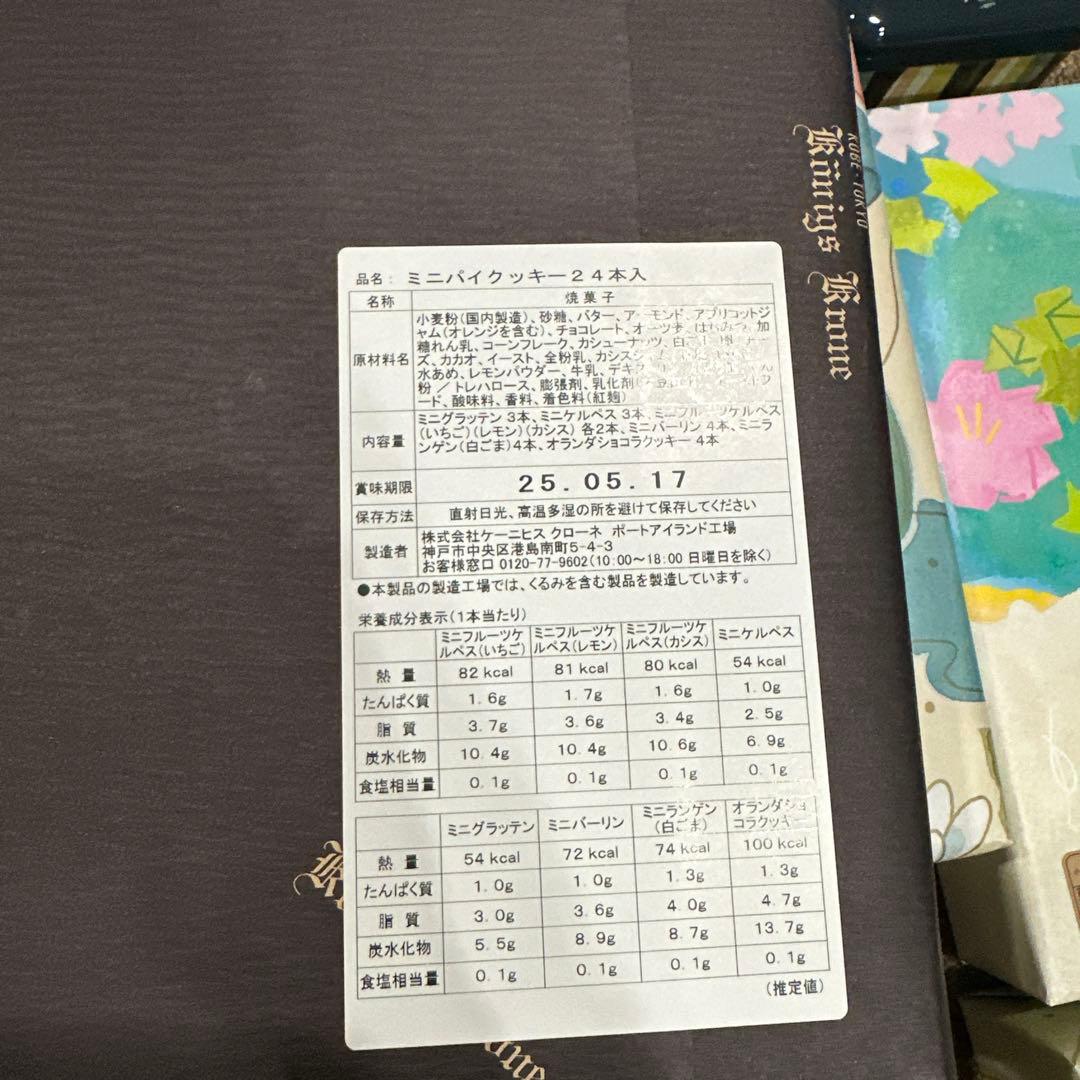 KOBE・TOKYO
Königs Krone
品名： ミニパイクッキー２４本入
名称 焼菓子
原材料名 小麦粉（国内製造）、砂糖、バター、アーモンド、アプリコットジ
ャム（オレンジを含む）、チョコレート、オーツ麦、はちみつ、加
糖れん乳、コーンフレーク、カシューナッツ、白ごま、
ズ、カカオ、イースト、全粉乳、カシス
水あめ、レモンパウダー、牛乳、デキス
粉 ／トレハロース、膨張剤、乳化剤
ード、酸味料、香料、着色料（紅麹）
内容量 ミニグラッテン 3本、ミニケルペス 3本、ミニフルーツケルペス
（いちご）（レモン）（カシス） 各2本、ミニバーリン 4本、ミニラ
ンゲン（白ごま）4本、オランダショコラクッキー 4本
賞味期限 25.05.17
保存方法 直射日光、高温多湿の所を避けて保存してください
製造者 株式会社ケーニヒス クローネ ポートアイランド工場
神戸市中央区港島南町5-4-3
お客様窓口 0120-77-9602（10:00～18:00 日曜日を除く）
●本製品の製造工場では、くるみを含む製品を製造しています。
栄養成分表示（1本当たり）
ミニフルーツケルペス（いちご） ミニフルーツケルペス（レモン） ミニフルーツケルペス（カシス） ミニケルペス
熱 量 82 kcal 81 kcal 80 kcal 54 kcal
たんぱく質 1.6g 1.7g 1.6g 1.0g
脂 質 3.7g 3.6g 3.4g 2.5g
炭水化物 10.4g 10.4g 10.6g 6.9g
食塩相当量 0.1g 0.1g 0.1g 0.1g
ミニグラッテン ミニバーリン ミニランゲン（白ごま） オランダショコラクッキー
熱 量 54 kcal 72 kcal 74 kcal 100 kcal
たんぱく質 1.0g 1.0g 1.3g 1.3g
脂 質 3.0g 3.6g 4.0g 4.7g
炭水化物 5.5g 8.9g 8.7g 13.7g
食塩相当量 0.1g 0.1g 0.1g 0.1g
（推定値）